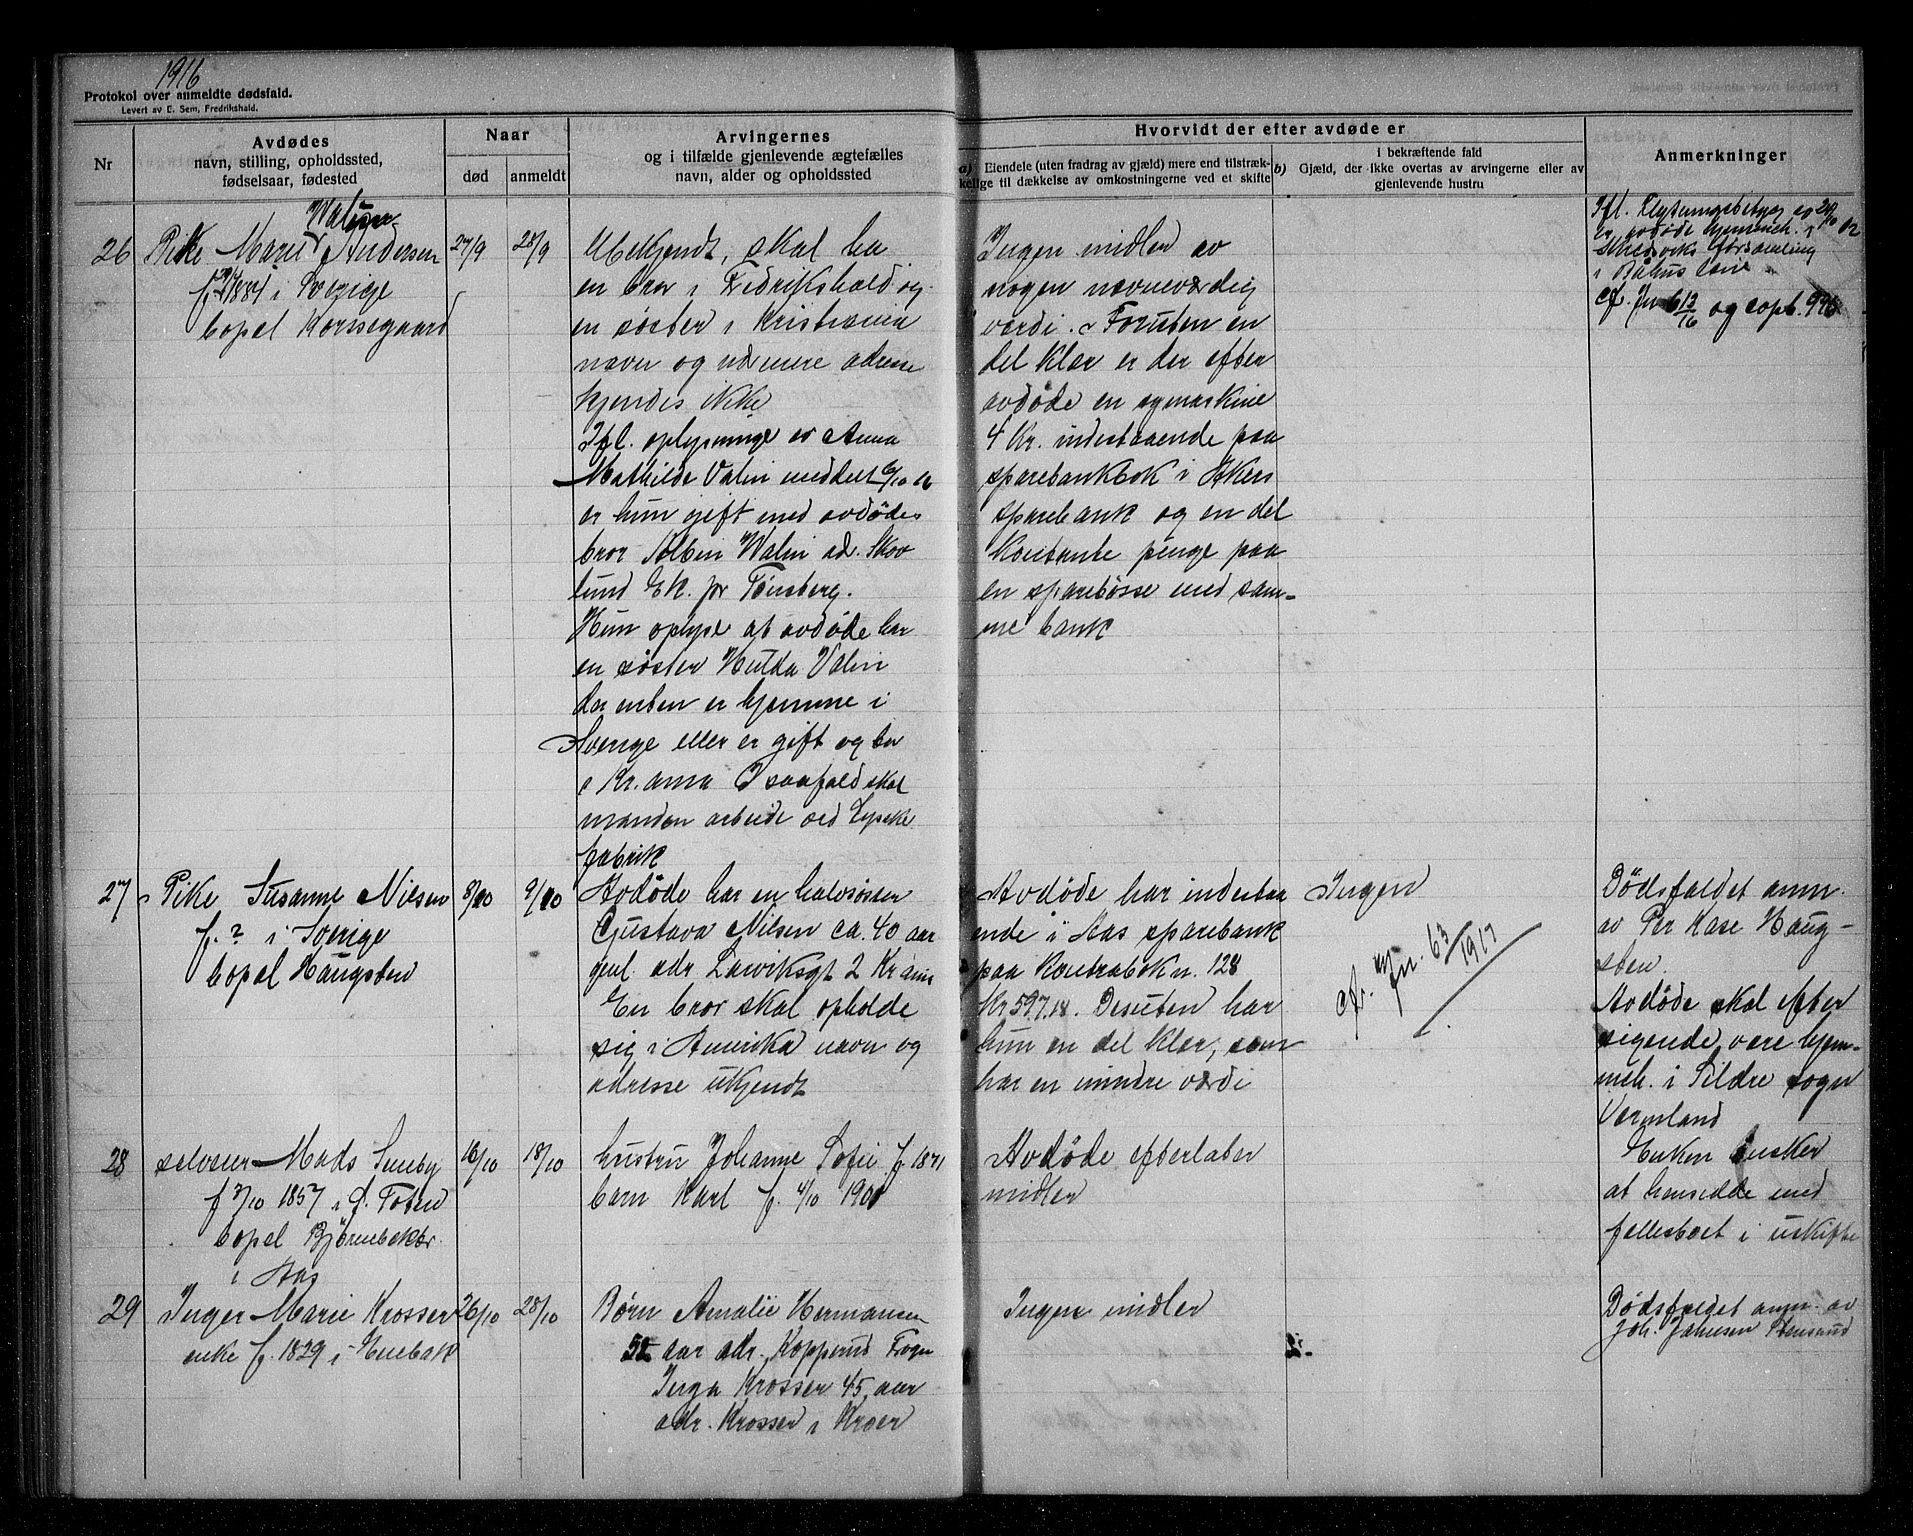 1916
Protokol over anmeldte dødsfald.
Levert av C. Sem, Fredrikshald.
Nr
Avdødes
navn, stilling, opholdssted,
fødselsaar, fødested
Naar
død
anmeldt
Arvingernes
og i tilfælde gjenlevende ægtefælles
navn, alder og opholdssted
Hvorvidt der efter avdøde er
a) Eiendele (uten fradrag av gjæld) mere end tilstræk-
kelige til dækkelse av omkostningerne ved et skifte
b) I bekræftende fald
Gjæld, der ikke overtas av arvingerne eller av
gjenlevende hustru
Anmerkninger
26
Pike Marie Andersen
1884 i Sverige
bopæl Korsegaard
27/9
28/9
Ubekjendt, skal ha
en bror i Fredrikshald og
en søster i Kristiania
navn og nærmere adresse
kjendes ikke
Ifl. oplysninge av Anna
Mathilde Valin meddelt 6/10 16
er hun gift med avdødes
bror Albin Walin ad. Skov
lund Ek. pr Tønsberg.
Hun oplyse at avdøde har
en søster Hulda Valin
der enten er hjemme i
Sverige eller er gift og bor
i Kr.ania I saafald skal
manden arbeide ved
fabrik
Ingen midler av
nogen nævneværdig
værdi. Foruten en
del klær er der efter
avdøde en symaskine
4 Kr. indestaaende paa
sparebankbok i Akers
sparebank og en del
kontante penge paa
en sparebøsse med sam-
me bank
Ifl.
er avdøde hjemmeh. i
Skredsviks församling
i Båhus län
cf. Jn og copb. 996
27
Pike Susanne Nilsen
f. ? i Sverige
bopæl Haugsten
9/10
Avdøde har en halvsøster
Gustava Nilsen ca. 40 aar
gml. adr Larviksgt 2 Kr.ania
En bror skal opholde
sig i Amerika navn og
adresse ukjendt
Avdøde har indestaa
ende i Aas sparebank
paa kontrabok n. 128
Kr 597.18. Desuten har
hun en del klær, som
har en mindre værdi
Ingen
cfr. Jn. 63/1917
Dødsfaldet anm.
av Per Kase Haug-
sten.
Avdøde skal efter
sigende være hjem-
meh. i Sildre sogn
Värmland
28
selveier Mads Sundby
f 1857 i Ø. Toten
bopæl Bjørnebekbr.
i Aas
16/10
18/10
hustru Johanne Sofie f. 1871
barn Karl f. 4/10 1901
Avdøde efterlater
midler
Enken ønsker
at hensidde med
fellesboet i uskifte
29
Inger Marie Krosser
enke f. 1829 i Enebak
26/10
28/10
Børn Amalie Hermansen
52 aar adr. Kopperud Frogn
Inga Krosser 45 aar
adr. Krosser i Kroer
Ingen midler
Dødsfaldet anm. av
Joh. Johnsen